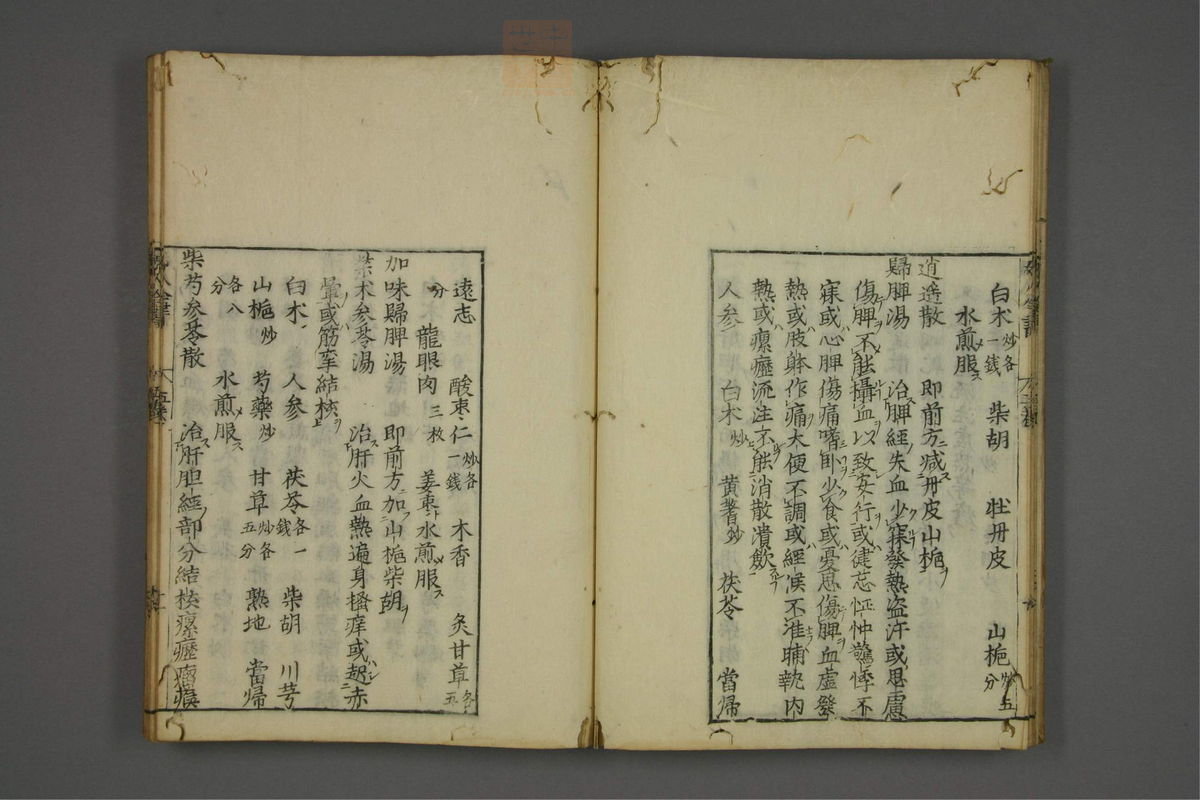 白朮炒各一錢 柴胡 牡丹皮 山梔炒五分
水煎服ス
逍遥散 即前方ニ减ス丹皮山梔ヲ
歸脾湯 治脾經失血少寐發熱盗汗或思慮
傷脾不能攝血以致妄行或健忘怔忡驚悸不
寐或心脾傷痛嗜卧少食或憂思傷脾血虚發
熱或肢躰作痛大便不調或經候不准晡熱内
熱或瘰癧流注不能消散潰斂
人参 白朮炒 黄蓍炒 茯苓 當歸
遠志 酸枣仁炒各一錢 木香 炙甘草各五
分 龍眼肉三枚 姜枣水煎服ス
加味歸脾湯 即前方加山梔柴胡ヲ
柴朮参苓湯 治肝火血熱遍身搔痒或起赤
暈或筋挛結核ヲ
白朮 人参 茯苓各一錢 柴胡 川芎
山梔炒 芍藥炒 甘草炒各五分 熟地 當歸
各八分 水煎服ス
柴芍参苓散 治肝胆經部分結核瘰癧